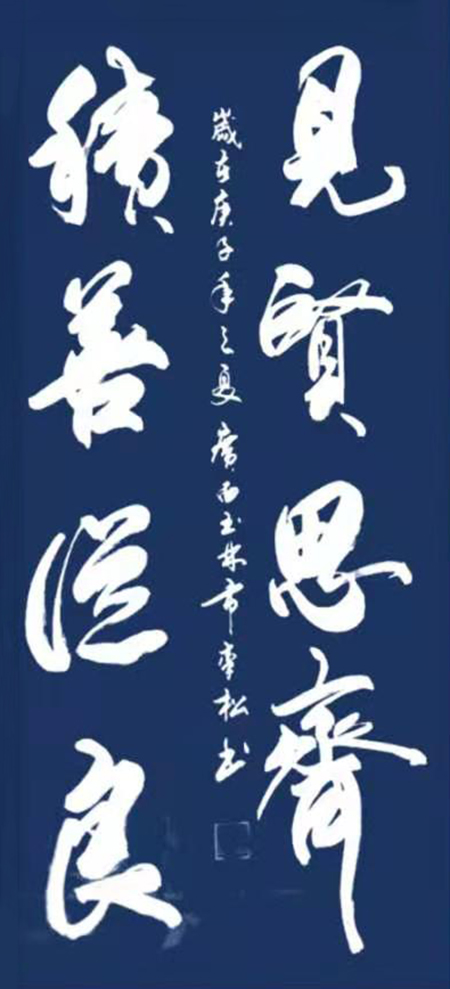 見賢思齊
積善從良
歲在庚子年之夏廣西玉林市李松书